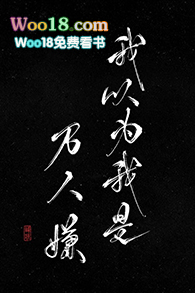 Woo18.com
Woo18免费看书
我以为我是
万人嫌